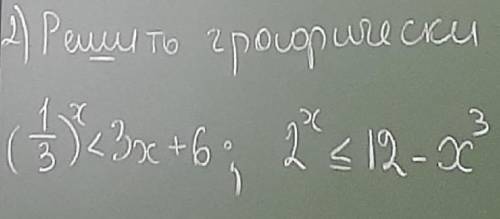 2) Решить графически
(1/3)^x < 3x + 6; 2^x ≤ 12 - x^3